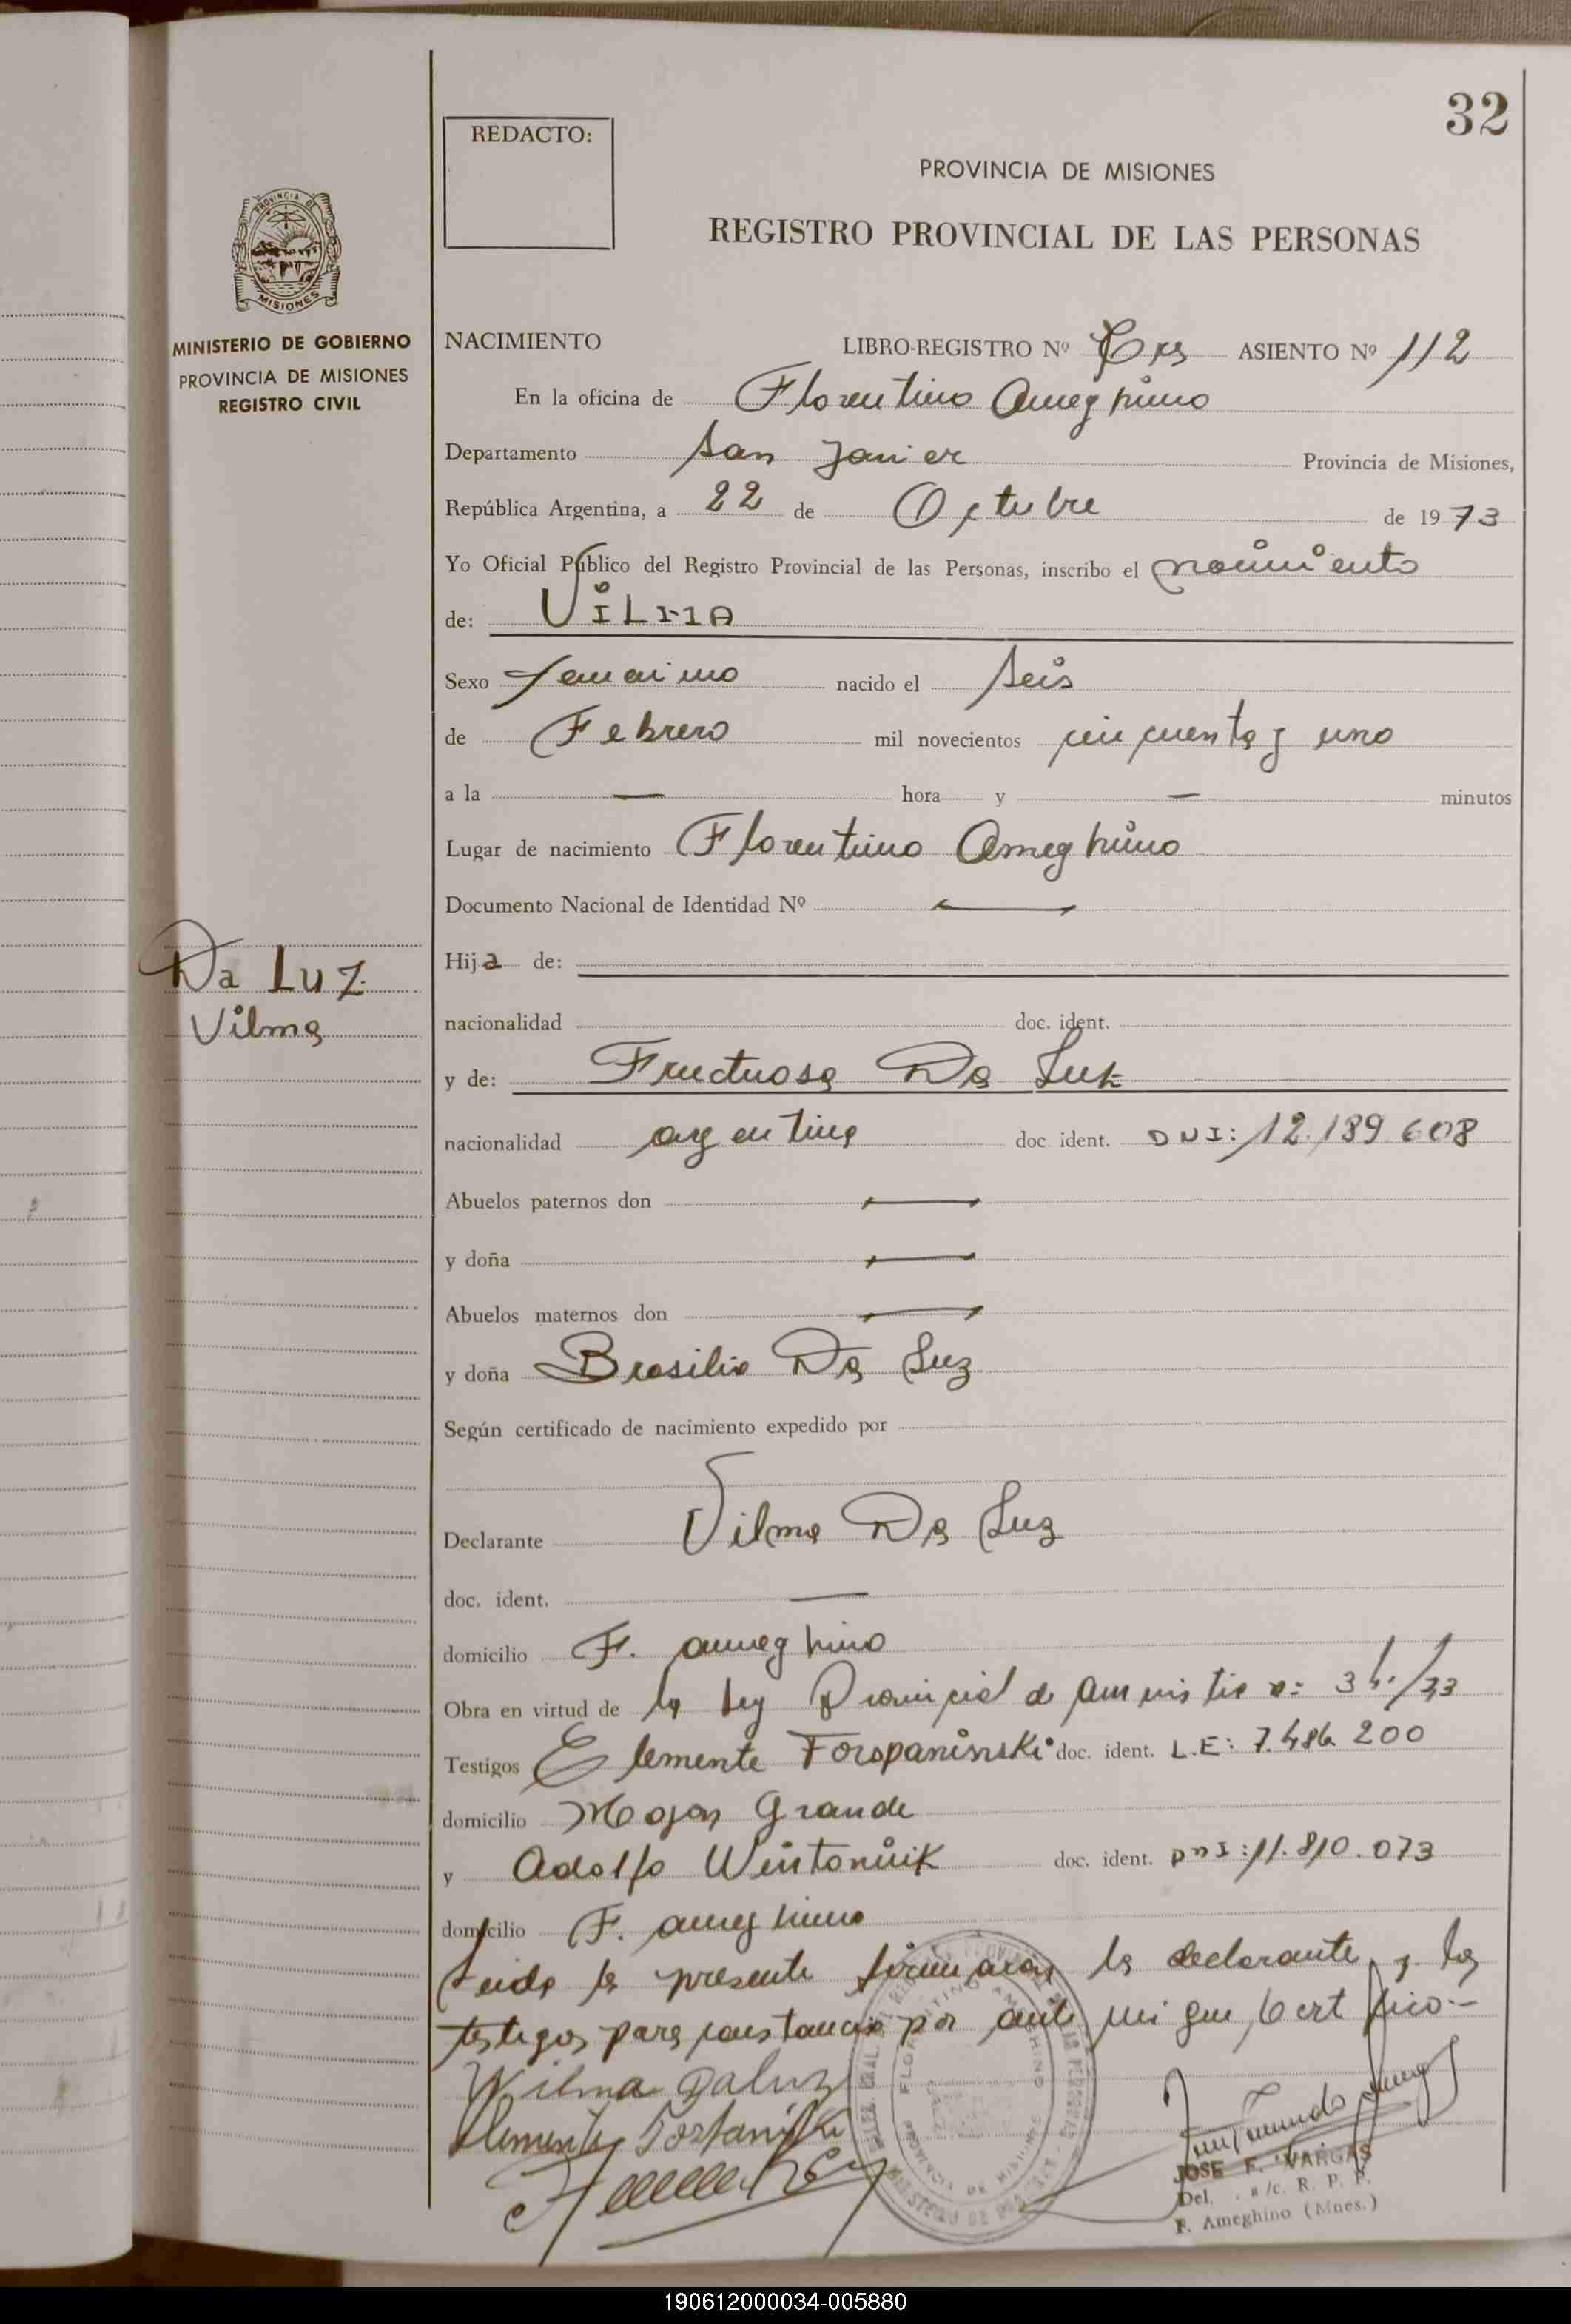 32
REDACTO:
PROVINCIA DE MISIONES
REGISTRO PROVINCIAL DE LAS PERSONAS
PROVINCIA DE
MISIONES
MINISTERIO DE GOBIERNO
PROVINCIA DE MISIONES
REGISTRO CIVIL
NACIMIENTO LIBRO-REGISTRO Nº Tres ASIENTO Nº 112
En la oficina de Florentino Ameghino
Departamento San Javier Provincia de Misiones,
República Argentina, a 22 de Octubre de 1973
Yo Oficial Público del Registro Provincial de las Personas, inscribo el nacimiento
de: VILMA
Sexo femenino nacido el seis
de Febrero mil novecientos cincuenta y uno
a la — hora y — minutos
Lugar de nacimiento Florentino Ameghino
Documento Nacional de Identidad Nº —
Da Luz
Vilma
Hija de:
nacionalidad doc. ident.
y de: Fructuosa Da Luz
nacionalidad argentina doc. ident. DNI: 12.189.608
Abuelos paternos don —
y doña —
Abuelos maternos don —
y doña Brasilia Da Luz
Según certificado de nacimiento expedido por
Declarante Vilma Da Luz
doc. ident. —
domicilio F. Ameghino
Obra en virtud de la ley Provincial de amnistia
Testigos Clemente doc. ident. L.E: 7.486.200
domicilio Mojon Grande
y Adolfo Wintoniuk doc. ident. DNI: 11.810.073
domicilio F. Ameghino
Leida la presente firmaron la declarante y los
testigos para constancia por ante mi que certifico.-
Wilma Daluz
JOSE F. VARGAS
Del. a/c. R. P. P.
F. Ameghino (Mnes.)
190612000034-005880